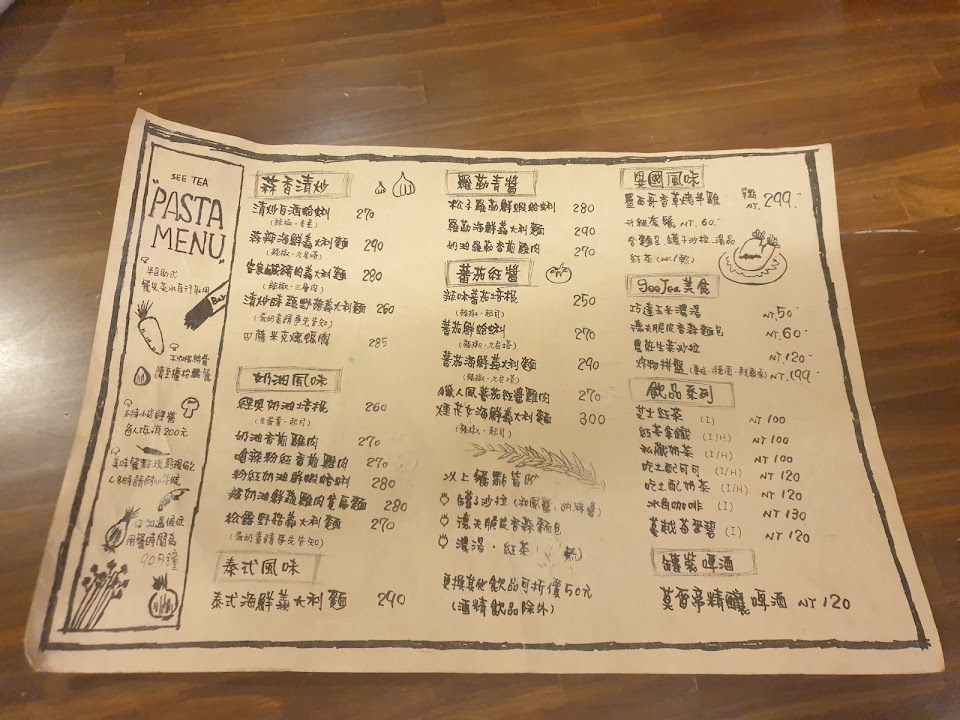 SEE TEA
"PASTA
MENU"
半自助式
餐具茶水自行取用
Bar
請至櫃檯點餐
每人低消200元
用餐時間為
90分鐘
蒜香清炒
清炒白酒蛤蜊 270
(辣椒·香菜)
蒜辣海鮮義大利麵 290
(辣椒·九層塔)
客家鹹豬肉義大利麵 280
(辣椒·三層肉)
清炒時蔬野菇義大利麵 260
(蛋奶素請事先告知)
巴薩米克燻鴨胸 285
奶油風味
經典奶油培根 260
(生蛋黃·起司)
奶油香煎雞肉 270
嗆辣粉紅香煎雞肉 270
粉紅奶油鮮蝦蛤蜊 280
辣奶油鮮蔬雞肉寬扁麵 280
松露野菇義大利麵 270
(蛋奶素請事先告知)
泰式風味
泰式海鮮義大利麵 290
羅勒青醬
松子羅勒鮮蝦蛤蜊 280
羅勒海鮮義大利麵 290
奶油羅勒香煎雞肉 270
蕃茄紅醬
辣味蕃茄培根 250
(辣椒·起司)
蕃茄鮮蛤蜊 270
(辣椒·九層塔)
蕃茄海鮮義大利麵 290
(辣椒·九層塔)
獵人風蕃茄紅醬雞肉 270
煙花女海鮮義大利麵 300
(辣椒·起司)
以上餐點皆附
罐子沙拉(和風醬,胡麻醬)
濃湯·紅茶(
更換其他飲品可折價50元
(酒精飲品除外)
異國風味
墨西哥香草烤半雞 NT.299.-
升級套餐 NT.60.-
含麵包 罐子沙拉.湯品
See Tea 美食
巧達玉米濃湯 NT.50.-
NT.60.-
農莊生菜沙拉 NT.120.-
炸物拼盤 NT.199.-
飲品系列
芝士紅茶 (I) NT 100
紅茶拿鐵 (I/H) NT 100
私藏奶茶 (I/H) NT 100
吃土配可可 (I/H) NT 120
吃土配奶茶 (I/H) NT 120
冰角咖啡 (I) NT 130
蔓越莓蘇打 (I) NT 120
罐裝啤酒
莫雷帝精釀啤酒 NT 120